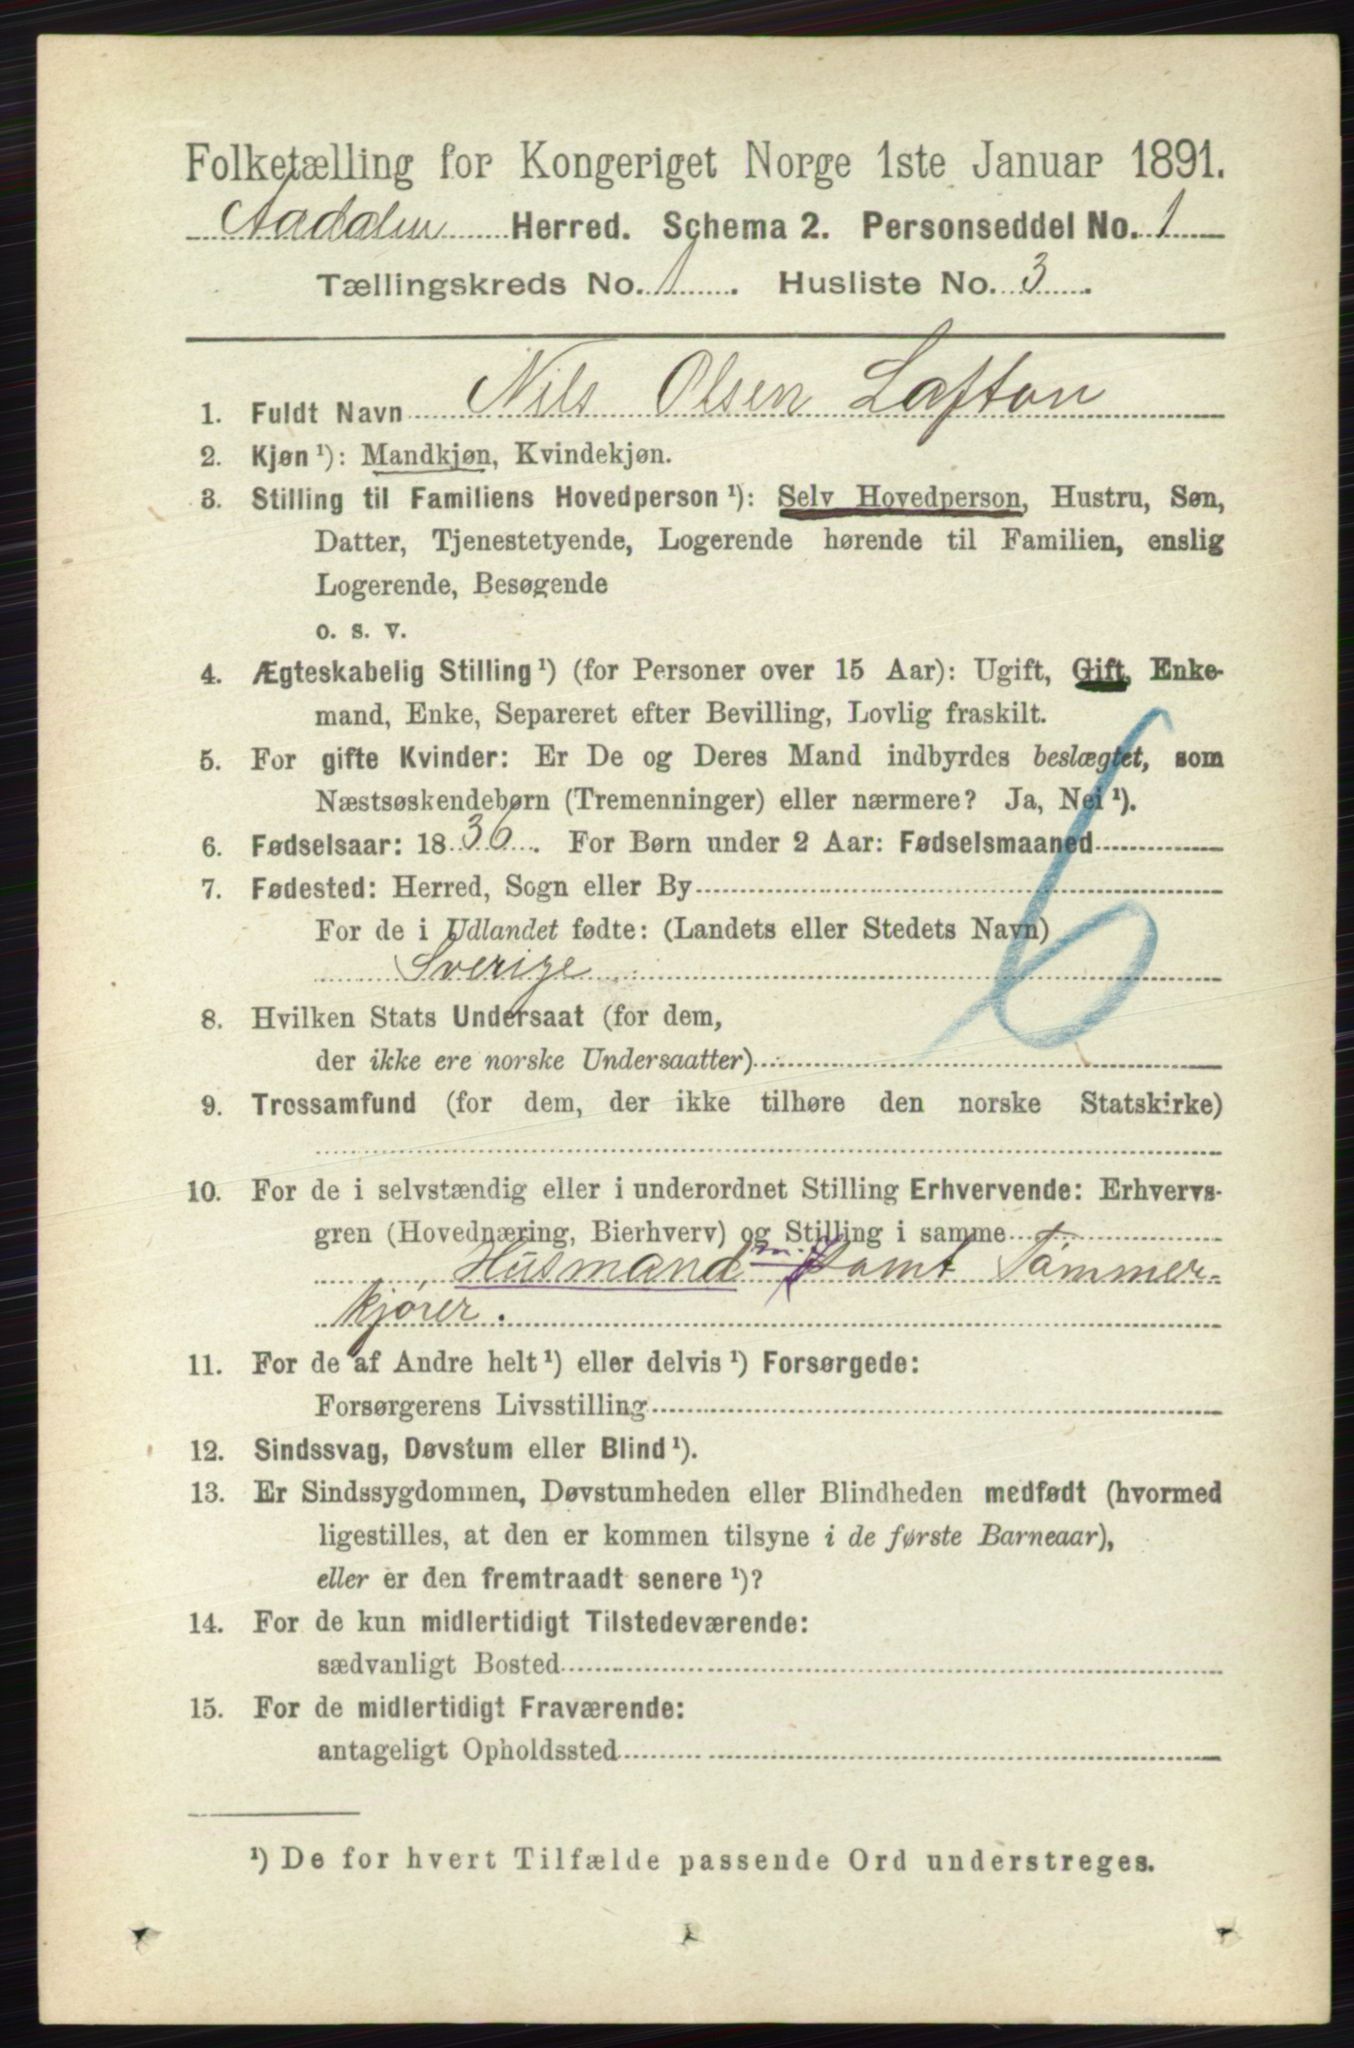 Folketælling for Kongeriget Norge 1ste Januar 1891.
Aadalen Herred. Schema 2. Personseddel No. 1
Tællingskreds No. 1. Husliste No. 3.
1. Fuldt Navn Nils Olsen Lofton
2. Kjøn ¹): Mandkjøn, Kvindekjøn.
3. Stilling til Familiens Hovedperson ¹): Selv Hovedperson, Hustru, Søn,
Datter, Tjenestetyende, Logerende hørende til Familien, enslig
Logerende, Besøgende
o. s. v.
4. Ægteskabelig Stilling ¹) (for Personer over 15 Aar): Ugift, Gift, Enke-
mand, Enke, Separeret efter Bevilling, Lovlig fraskilt.
5. For gifte Kvinder: Er De og Deres Mand indbyrdes beslægtet, som
Næstsøskendebørn (Tremenninger) eller nærmere? Ja, Nei ¹).
6. Fødselsaar: 1836. For Børn under 2 Aar: Fødselsmaaned
7. Fødested: Herred, Sogn eller By
For de i Udlandet fødte: (Landets eller Stedets Navn)
Sverige
6
8. Hvilken Stats Undersaat (for dem,
der ikke ere norske Undersaatter)
9. Trossamfund (for dem, der ikke tilhøre den norske Statskirke)
10. For de i selvstændig eller i underordnet Stilling Erhvervende: Erhvervs-
gren (Hovednæring, Bierhverv) og Stilling i samme
Husmand m. J samt Tømmer-
kjører.
11. For de af Andre helt ¹) eller delvis ¹) Forsørgede:
Forsørgerens Livsstilling
12. Sindssvag, Døvstum eller Blind ¹).
13. Er Sindssygdommen, Døvstumheden eller Blindheden medfødt (hvormed
ligestilles, at den er kommen tilsyne i de første Barneaar),
eller er den fremtraadt senere ¹)?
14. For de kun midlertidigt Tilstedeværende:
sædvanligt Bosted
15. For de midlertidigt Fraværende:
antageligt Opholdssted
¹) De for hvert Tilfælde passende Ord understreges.